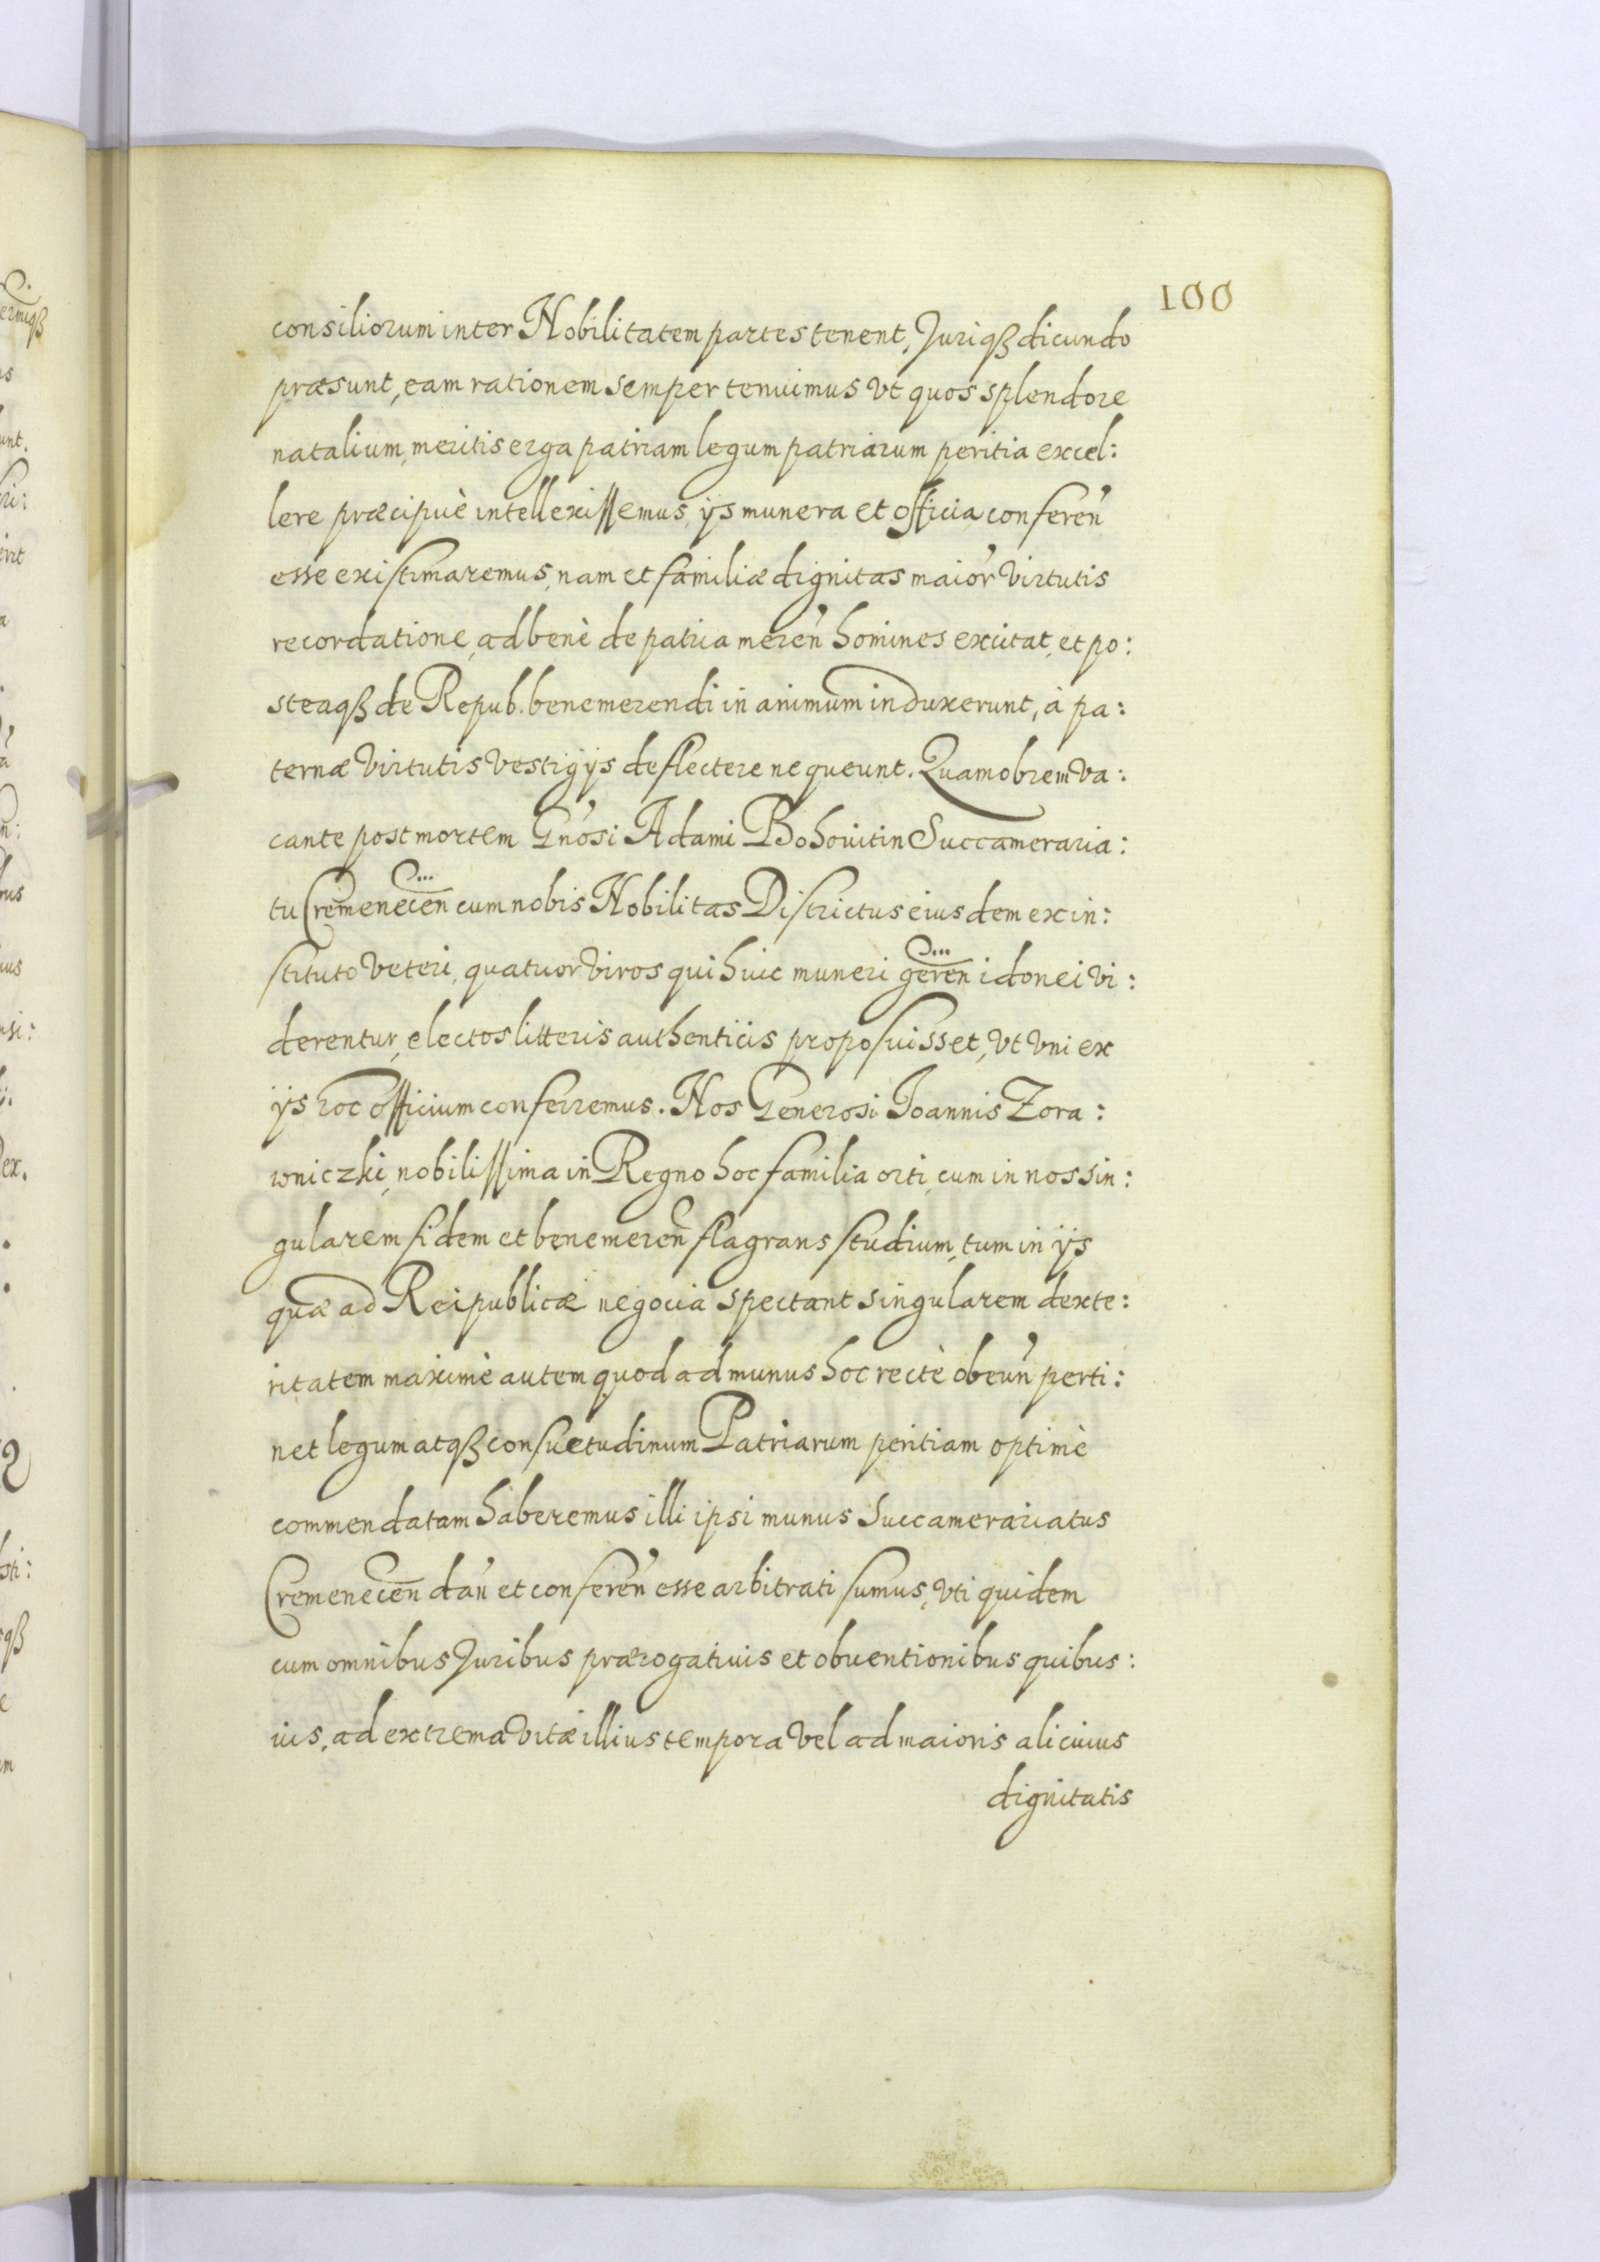 100
consiliorum inter Nobilitatem partes tenent, Juriqß dicundo
præsunt, eam rationem semper tenuimus vt quos splendore
natalium, meritis erga patriam legum patriarum peritia excel:
lere præcipuè intellexissemus, ijs munera et officia conferen̉
esse existimaremus, nam et familiæ dignitas maior̉ virtutis
recordatione, ad benè de patria meren̉ homines excitat, et po:
steaqß de Repub. benemerendi in animum induxerunt, à pa:
ternæ virtutis vestigijs deflectere nequeunt. Quamobrem va:
cante post mortem Gn̉osi Adami Bohouitin Succameraria:
tu Cremenecen̄ cum nobis Nobilitas Districtus eiusdem ex in:
stituto veteri, quatuor viros qui huic muneri geren̄ idonei vi:
derentur, electos litteris authenticis proposuisset, vt vni ex
ijs hoc officium conferremus. Nos Generosi Joannis Zora:
wniczki, nobilissima in Regno hoc familia orti, cum in nos sin:
gularem fidem et benemeren̉ flagrans studium, tum in ijs
quæ ad Reipublicæ negocia spectant singularem dexte:
ritatem maximè autem quod ad munus hoc rectè obeun̉ perti:
net legum atqß consuetudinum Patriarum peritiam optimè
commendatam haberemus illi ipsi munus Succamerariatus
Cremenecen̄ dan̉ et conferen̉ esse arbitrati sumus, vti quidem
cum omnibus Juribus prærogatiuis et obuentionibus quibus:
uis, ad extrema vitæ illius tempora vel ad maioris alicuius
dignitatis